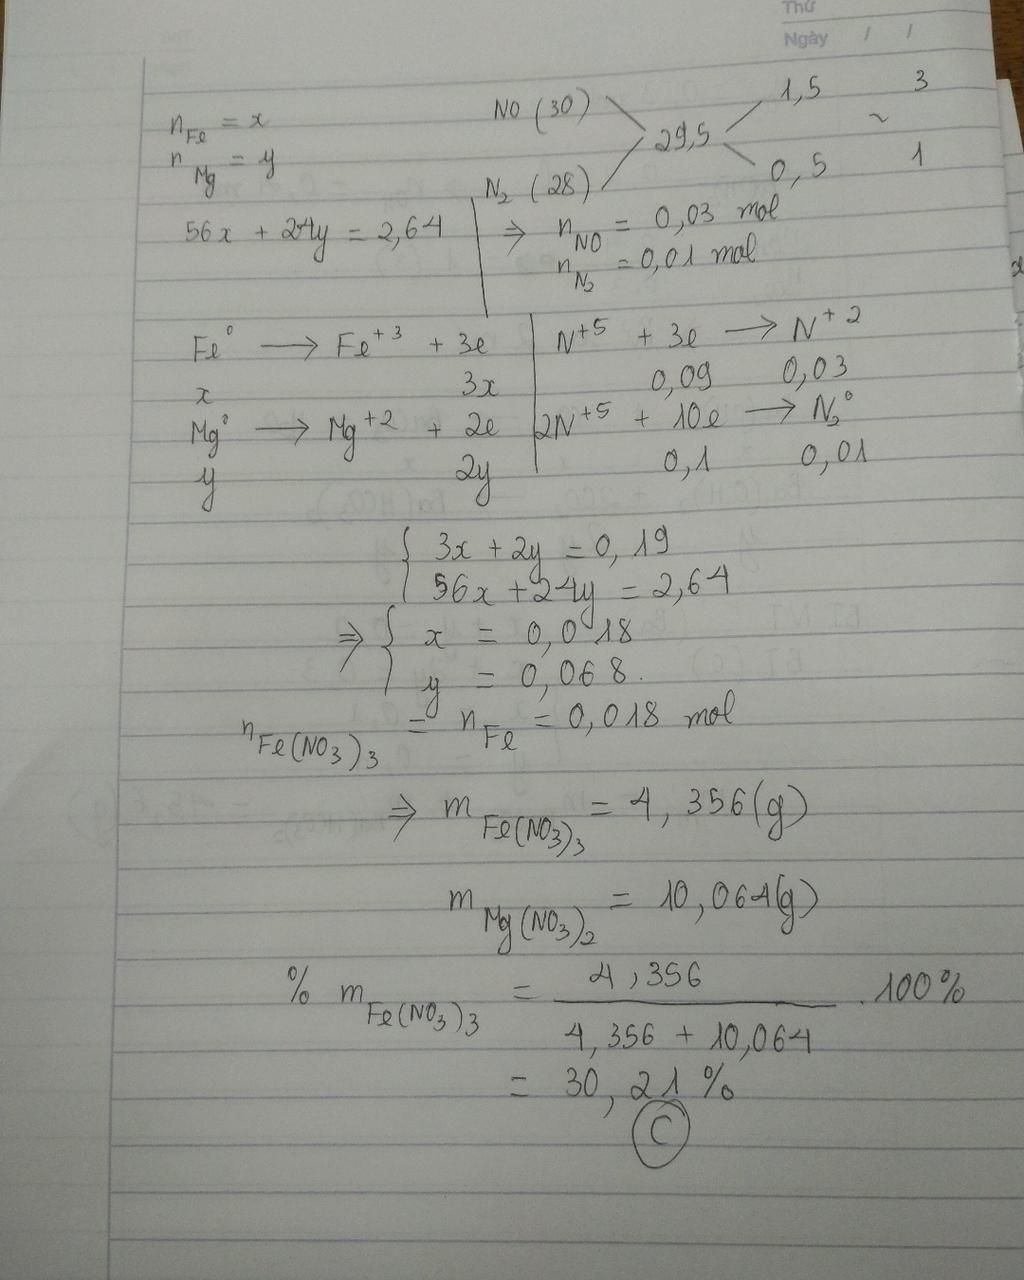 Thứ
Ngày / /
n_Fe = x
n_Mg = y
NO (30) 1,5 3
29,5 ~
N₂ (28) 0,5 1
56x + 24y = 2,64
⇒ n_NO = 0,03 mol
n_N₂ = 0,01 mol
Fe⁰ → Fe⁺³ + 3e
x 3x
Mg⁰ → Mg⁺² + 2e
y 2y
N⁺⁵ + 3e → N⁺²
0,09 0,03
2N⁺⁵ + 10e → N₂⁰
0,1 0,01
{ 3x + 2y = 0,19
56x + 24y = 2,64
⇒ { x = 0,018
y = 0,068.
n_Fe(NO₃)₃ = n_Fe = 0,018 mol
⇒ m_Fe(NO₃)₃ = 4,356(g)
m_Mg(NO₃)₂ = 10,064(g)
% m_Fe(NO₃)₃ = 4,356 / (4,356 + 10,064) . 100%
= 30,21%
C